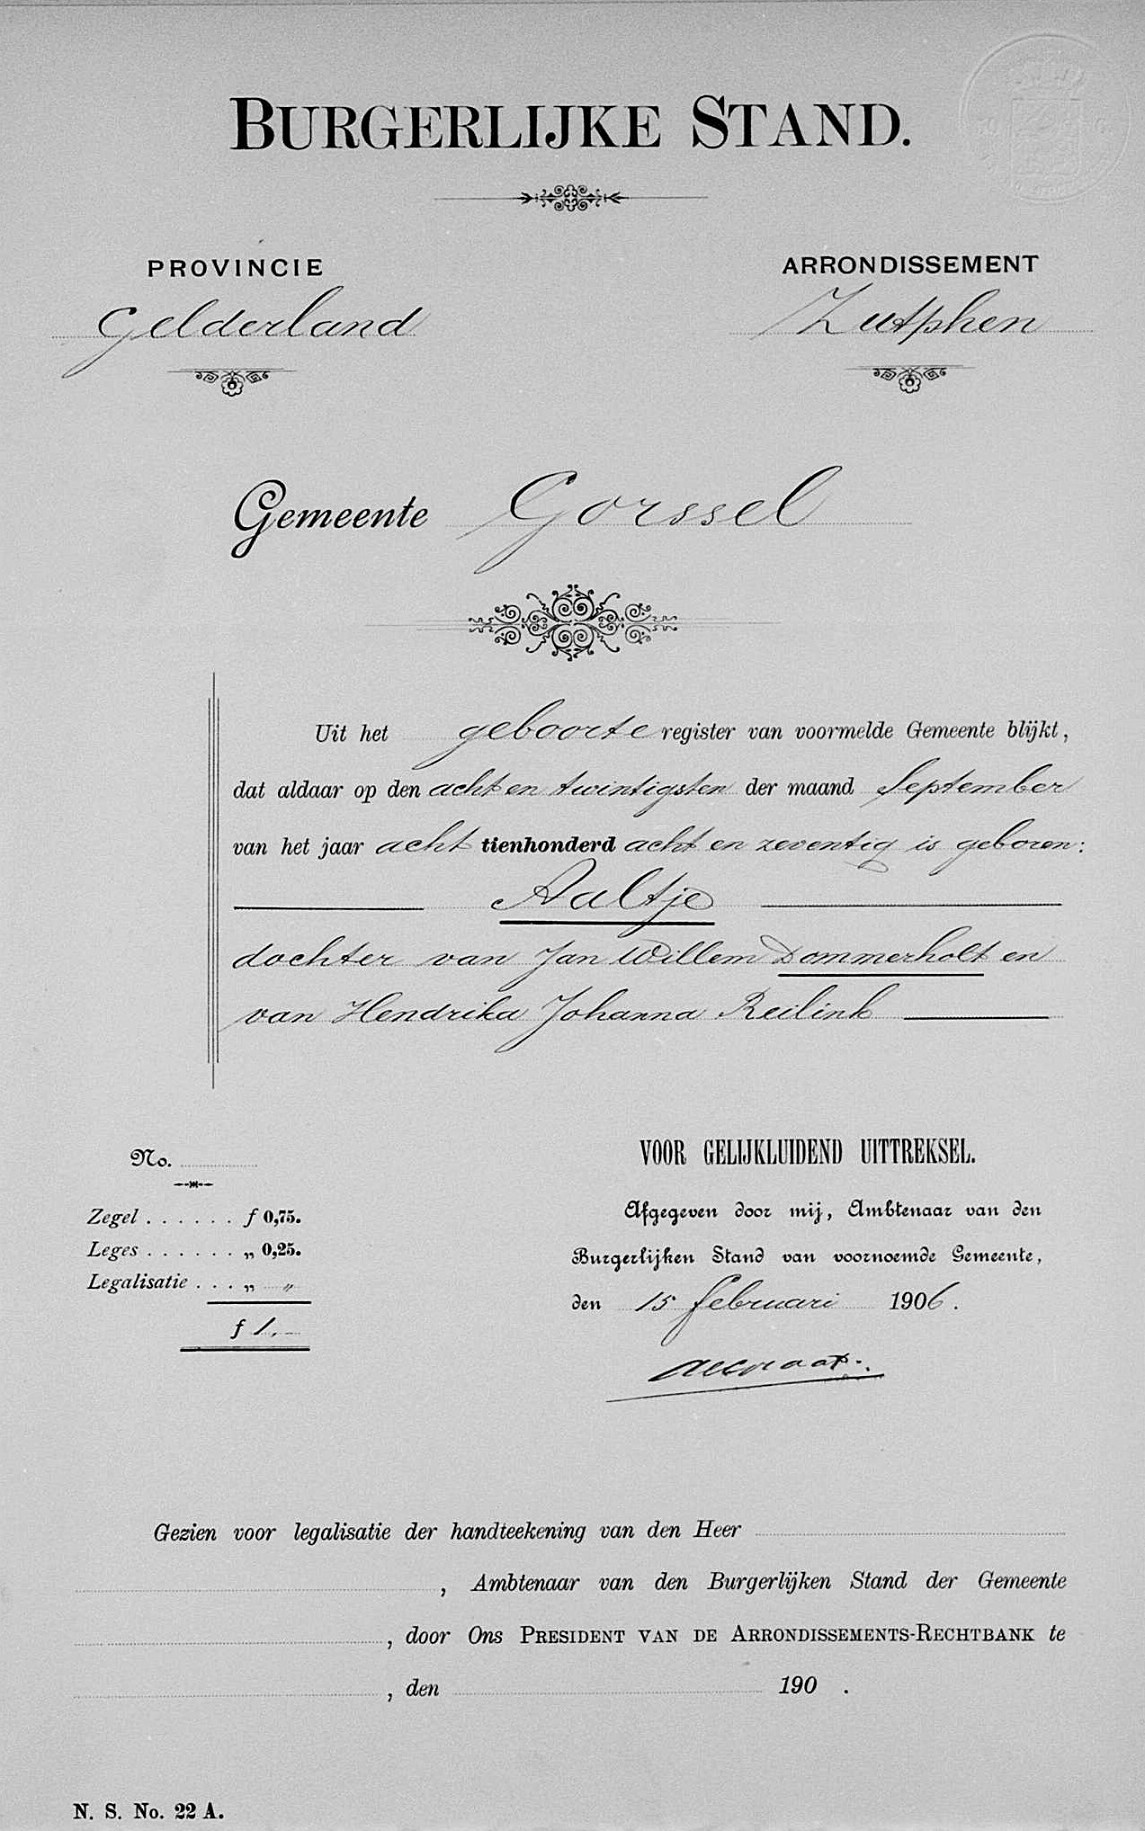 BURGERLIJKE STAND.
PROVINCIE
Gelderland
ARRONDISSEMENT
Zutphen
Gemeente Gorssel
Uit het geboorte register van voormelde Gemeente blijkt,
dat aldaar op den acht en twintigsten der maand September
van het jaar acht tienhonderd acht en zeventig is geboren:
Aaltje
dochter van Jan Willem Dommerholt en
van Hendrika Johanna Reilink
No.
Zegel . . . . . . f 0,75.
Leges . . . . . . „ 0,25.
Legalisatie . . . „ „
f 1,-
VOOR GELIJKLUIDEND UITTREKSEL.
Afgegeven door mij, Ambtenaar van den
Burgerlijken Stand van voornoemde Gemeente,
den 15 februari 1906.
Gezien voor legalisatie der handteekening van den Heer
, Ambtenaar van den Burgerlijken Stand der Gemeente
, door Ons PRESIDENT VAN DE ARRONDISSEMENTS-RECHTBANK te
, den 190 .
N. S. No. 22 A.